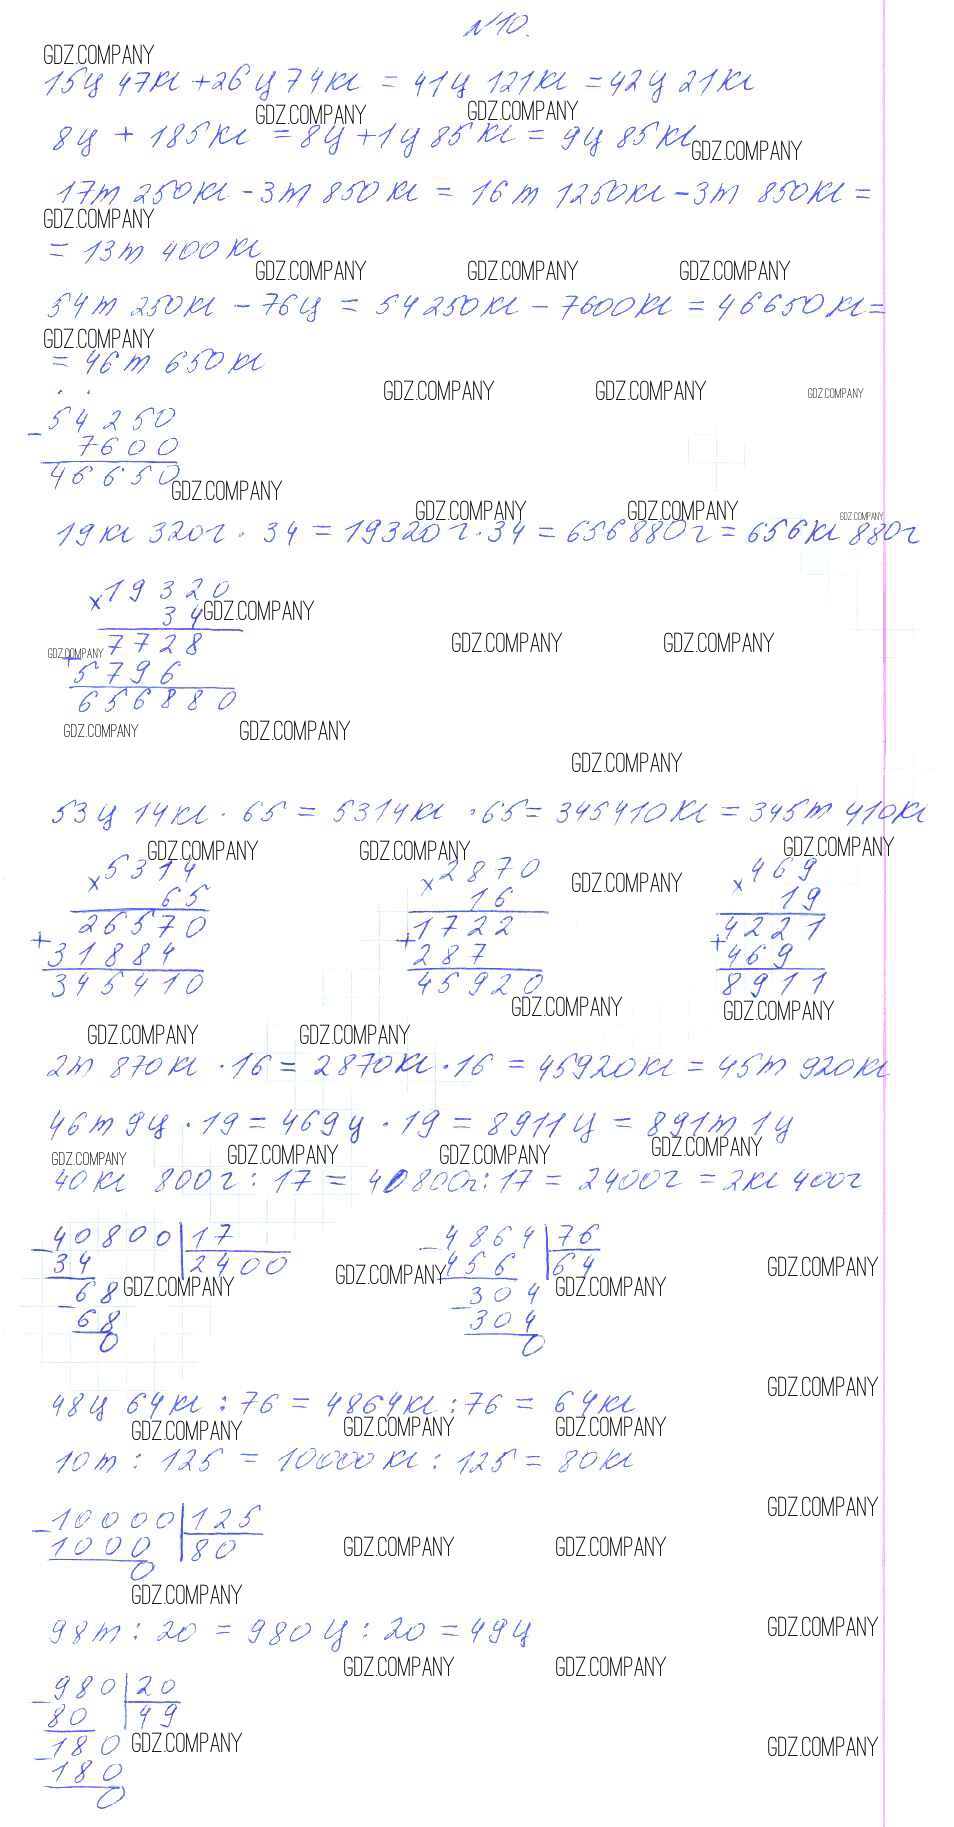 №10.
GDZ.COMPANY
15ц 47кг + 26ц 74кг = 41ц 121кг = 42ц 21кг
GDZ.COMPANY GDZ.COMPANY
8ц + 185кг = 8ц + 1ц 85кг = 9ц 85кг
GDZ.COMPANY
17т 250кг - 3т 850кг = 16т 1250кг - 3т 850кг =
GDZ.COMPANY
= 13т 400кг
GDZ.COMPANY GDZ.COMPANY GDZ.COMPANY
54т 250кг - 76ц = 54250кг - 7600кг = 46650кг =
GDZ.COMPANY
= 46т 650кг
GDZ.COMPANY GDZ.COMPANY GDZ.COMPANY
- 54250
7600
46650
GDZ.COMPANY
GDZ.COMPANY GDZ.COMPANY GDZ.COMPANY
19кг 320г · 34 = 19320г · 34 = 656880г = 656кг 880г
× 19320
34
GDZ.COMPANY
7728
GDZ.COMPANY GDZ.COMPANY GDZ.COMPANY
+ 5796
656880
GDZ.COMPANY GDZ.COMPANY
GDZ.COMPANY
53ц 14кг · 65 = 5314кг · 65 = 345410кг = 345т 410кг
GDZ.COMPANY GDZ.COMPANY GDZ.COMPANY
× 5314 × 2870 × 469
65 16 19
GDZ.COMPANY
26570 1722 4221
+ 31884 + 287 + 469
345410 45920 8911
GDZ.COMPANY GDZ.COMPANY
GDZ.COMPANY GDZ.COMPANY
2т 870кг · 16 = 2870кг · 16 = 45920кг = 45т 920кг
46т 9ц · 19 = 469ц · 19 = 8911ц = 891т 1ц
GDZ.COMPANY GDZ.COMPANY GDZ.COMPANY GDZ.COMPANY
40кг 800г : 17 = 40800г : 17 = 2400г = 2кг 400г
- 40800 | 17 - 4864 | 76
34 | 2400 456 | 64
GDZ.COMPANY GDZ.COMPANY GDZ.COMPANY GDZ.COMPANY
- 68 - 304
68 304
0 0
GDZ.COMPANY
48ц 64кг : 76 = 4864кг : 76 = 64кг
GDZ.COMPANY GDZ.COMPANY GDZ.COMPANY
10т : 125 = 10000кг : 125 = 80кг
GDZ.COMPANY
- 10000 | 125
1000 | 80
0
GDZ.COMPANY GDZ.COMPANY
GDZ.COMPANY
98т : 20 = 980ц : 20 = 49ц
GDZ.COMPANY
GDZ.COMPANY GDZ.COMPANY
- 980 | 20
80 | 49
- 180
GDZ.COMPANY GDZ.COMPANY
180
0